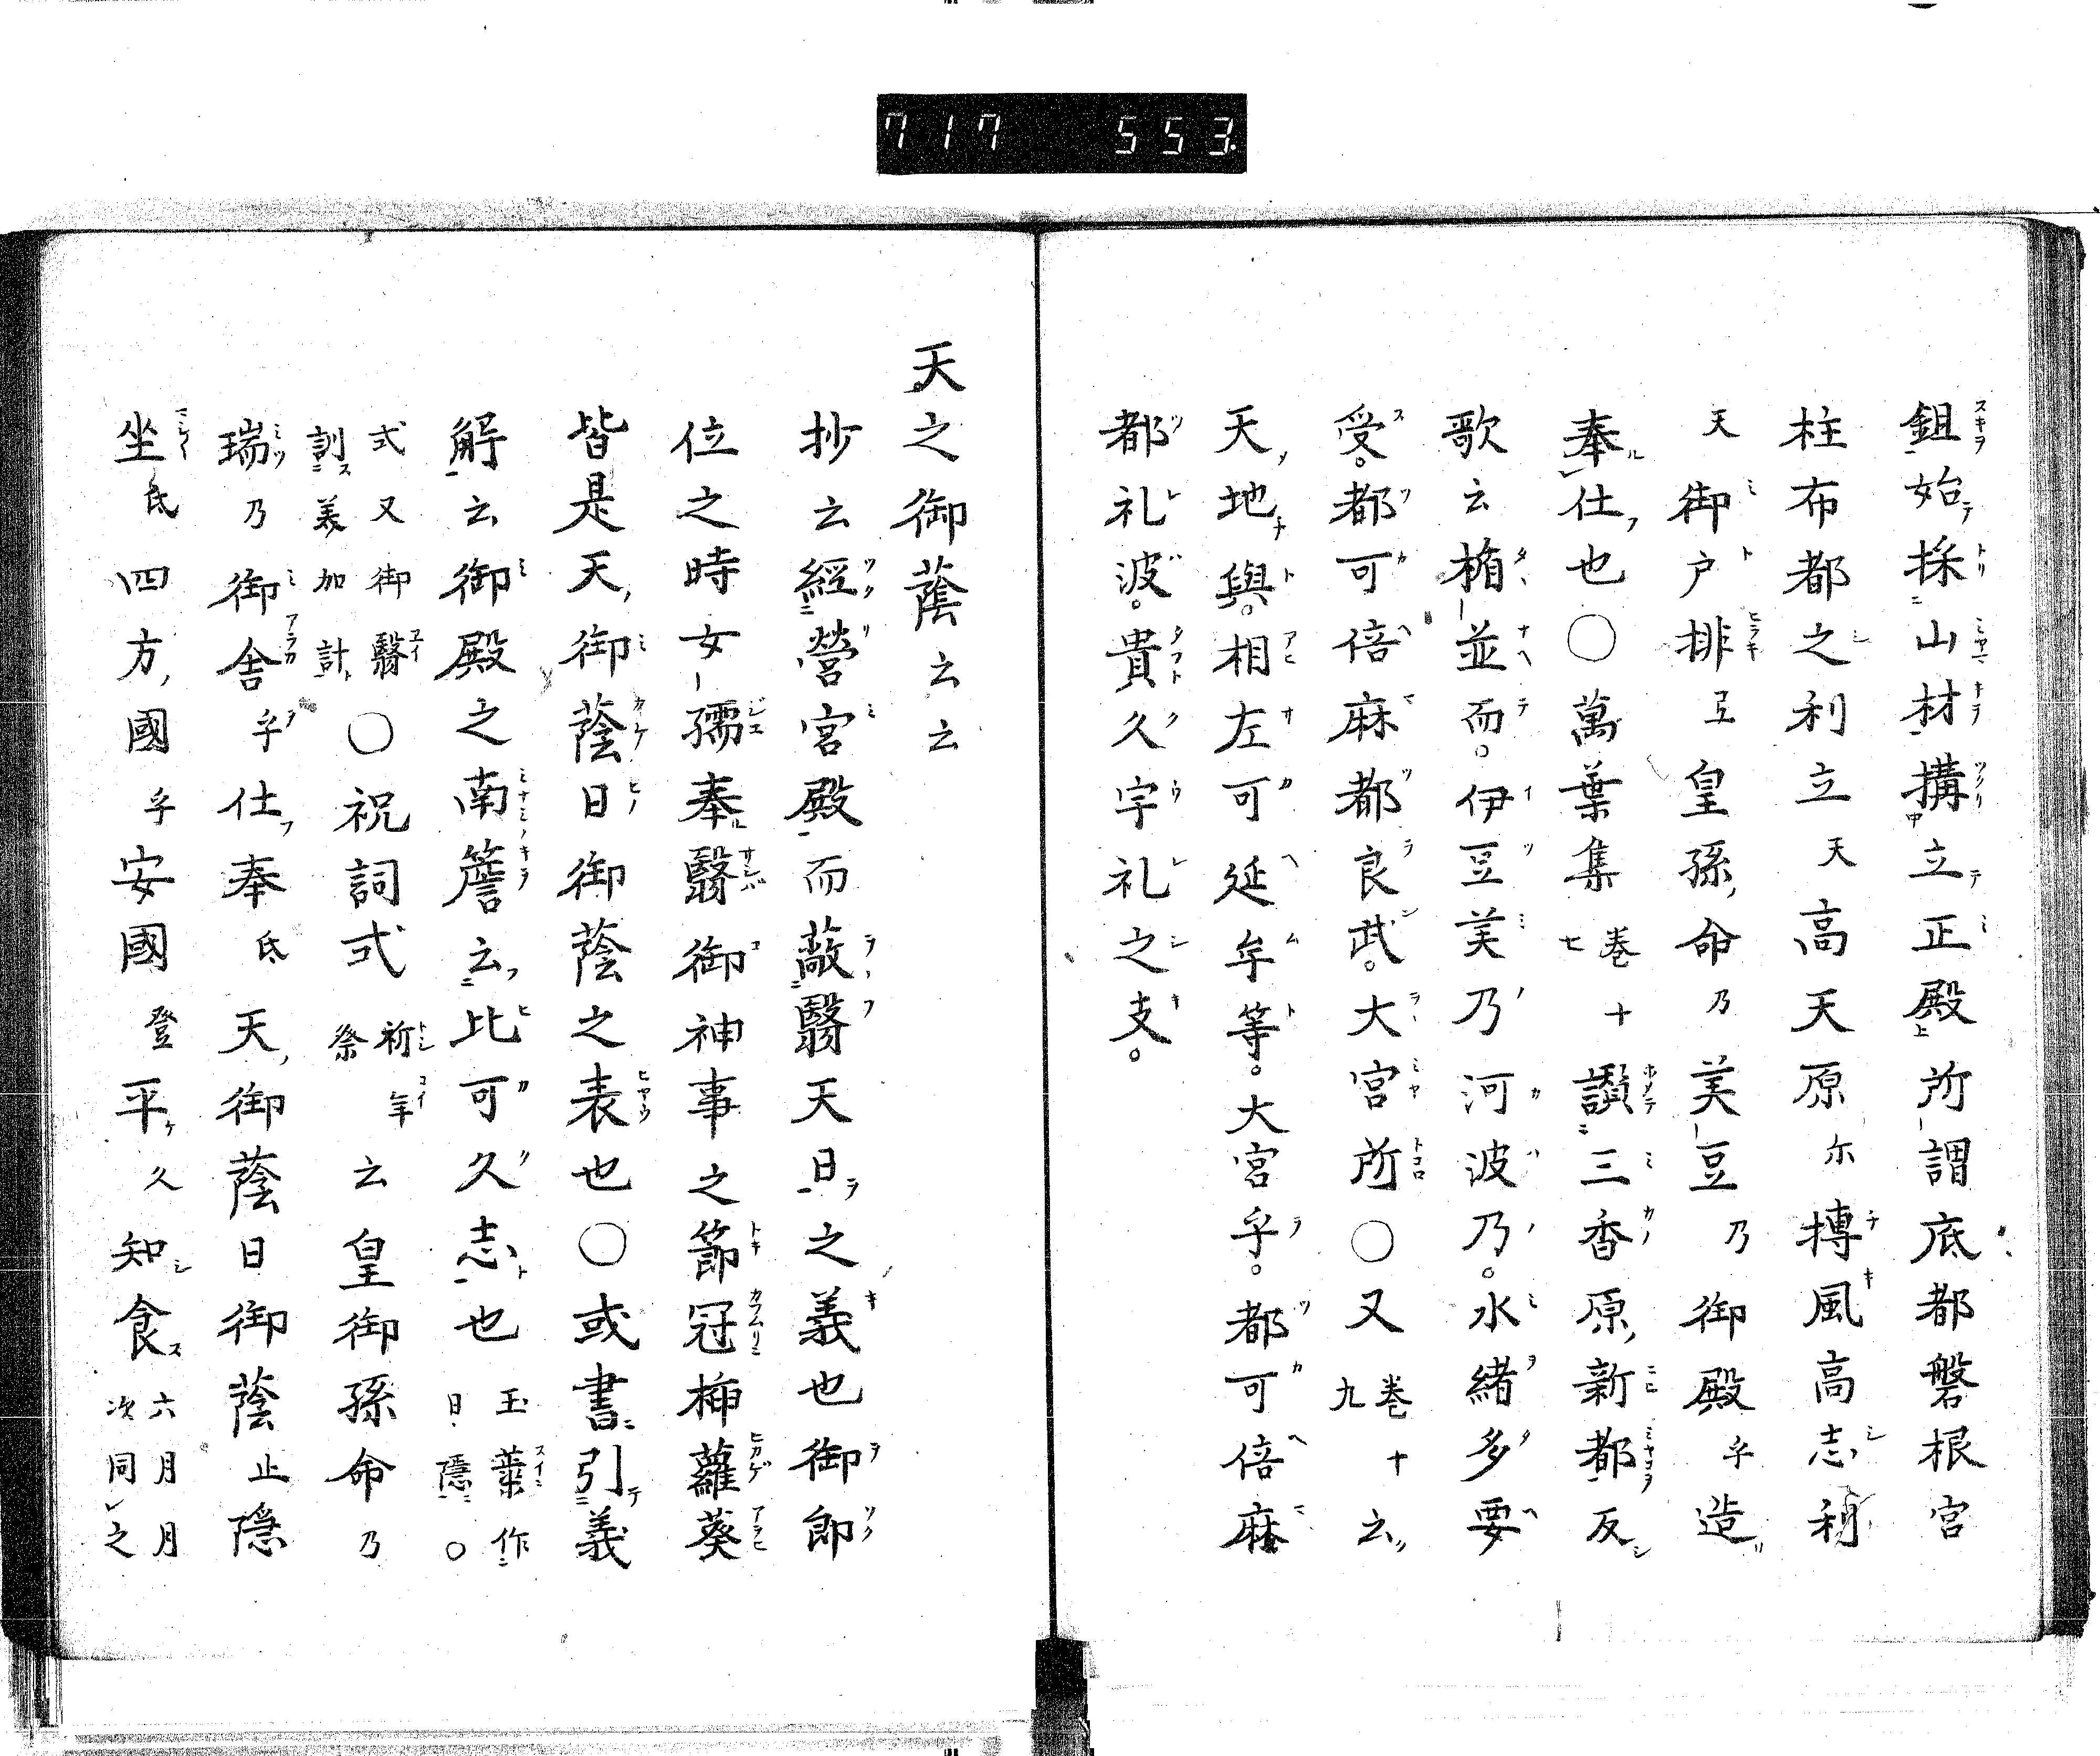 717 553
鉏始採山材構立正殿所謂底都磐根宮
柱布都之利立天高天原尓摶風高志利
天御戸排弖皇孫命乃美豆乃御殿乎造
奉仕也〇萬葉集巻十七讃三香原新都反
歌云楯並而。伊豆美乃河波乃。水緒多要
受。都可倍麻都良武。大宮所〇又巻十九云
天地與。相左可延牟等。大宮乎。都可倍麻
都礼波。貴久宇礼之支。
天之御蔭云云
抄云經營宮殿而蔽翳天日之義也御即
位之時女孺奉翳御神事之節冠挿蘿葵
皆是天御蔭日御蔭之表也〇或書引義
解云御殿之南簷云比可久志也玉葉作日隱〇
式又御翳訓美加計〇祝詞式祈年祭云皇御孫命乃
瑞乃御舎乎仕奉氐天御蔭日御蔭止隠
坐氐四方國乎安國登平久知食六月月次同之